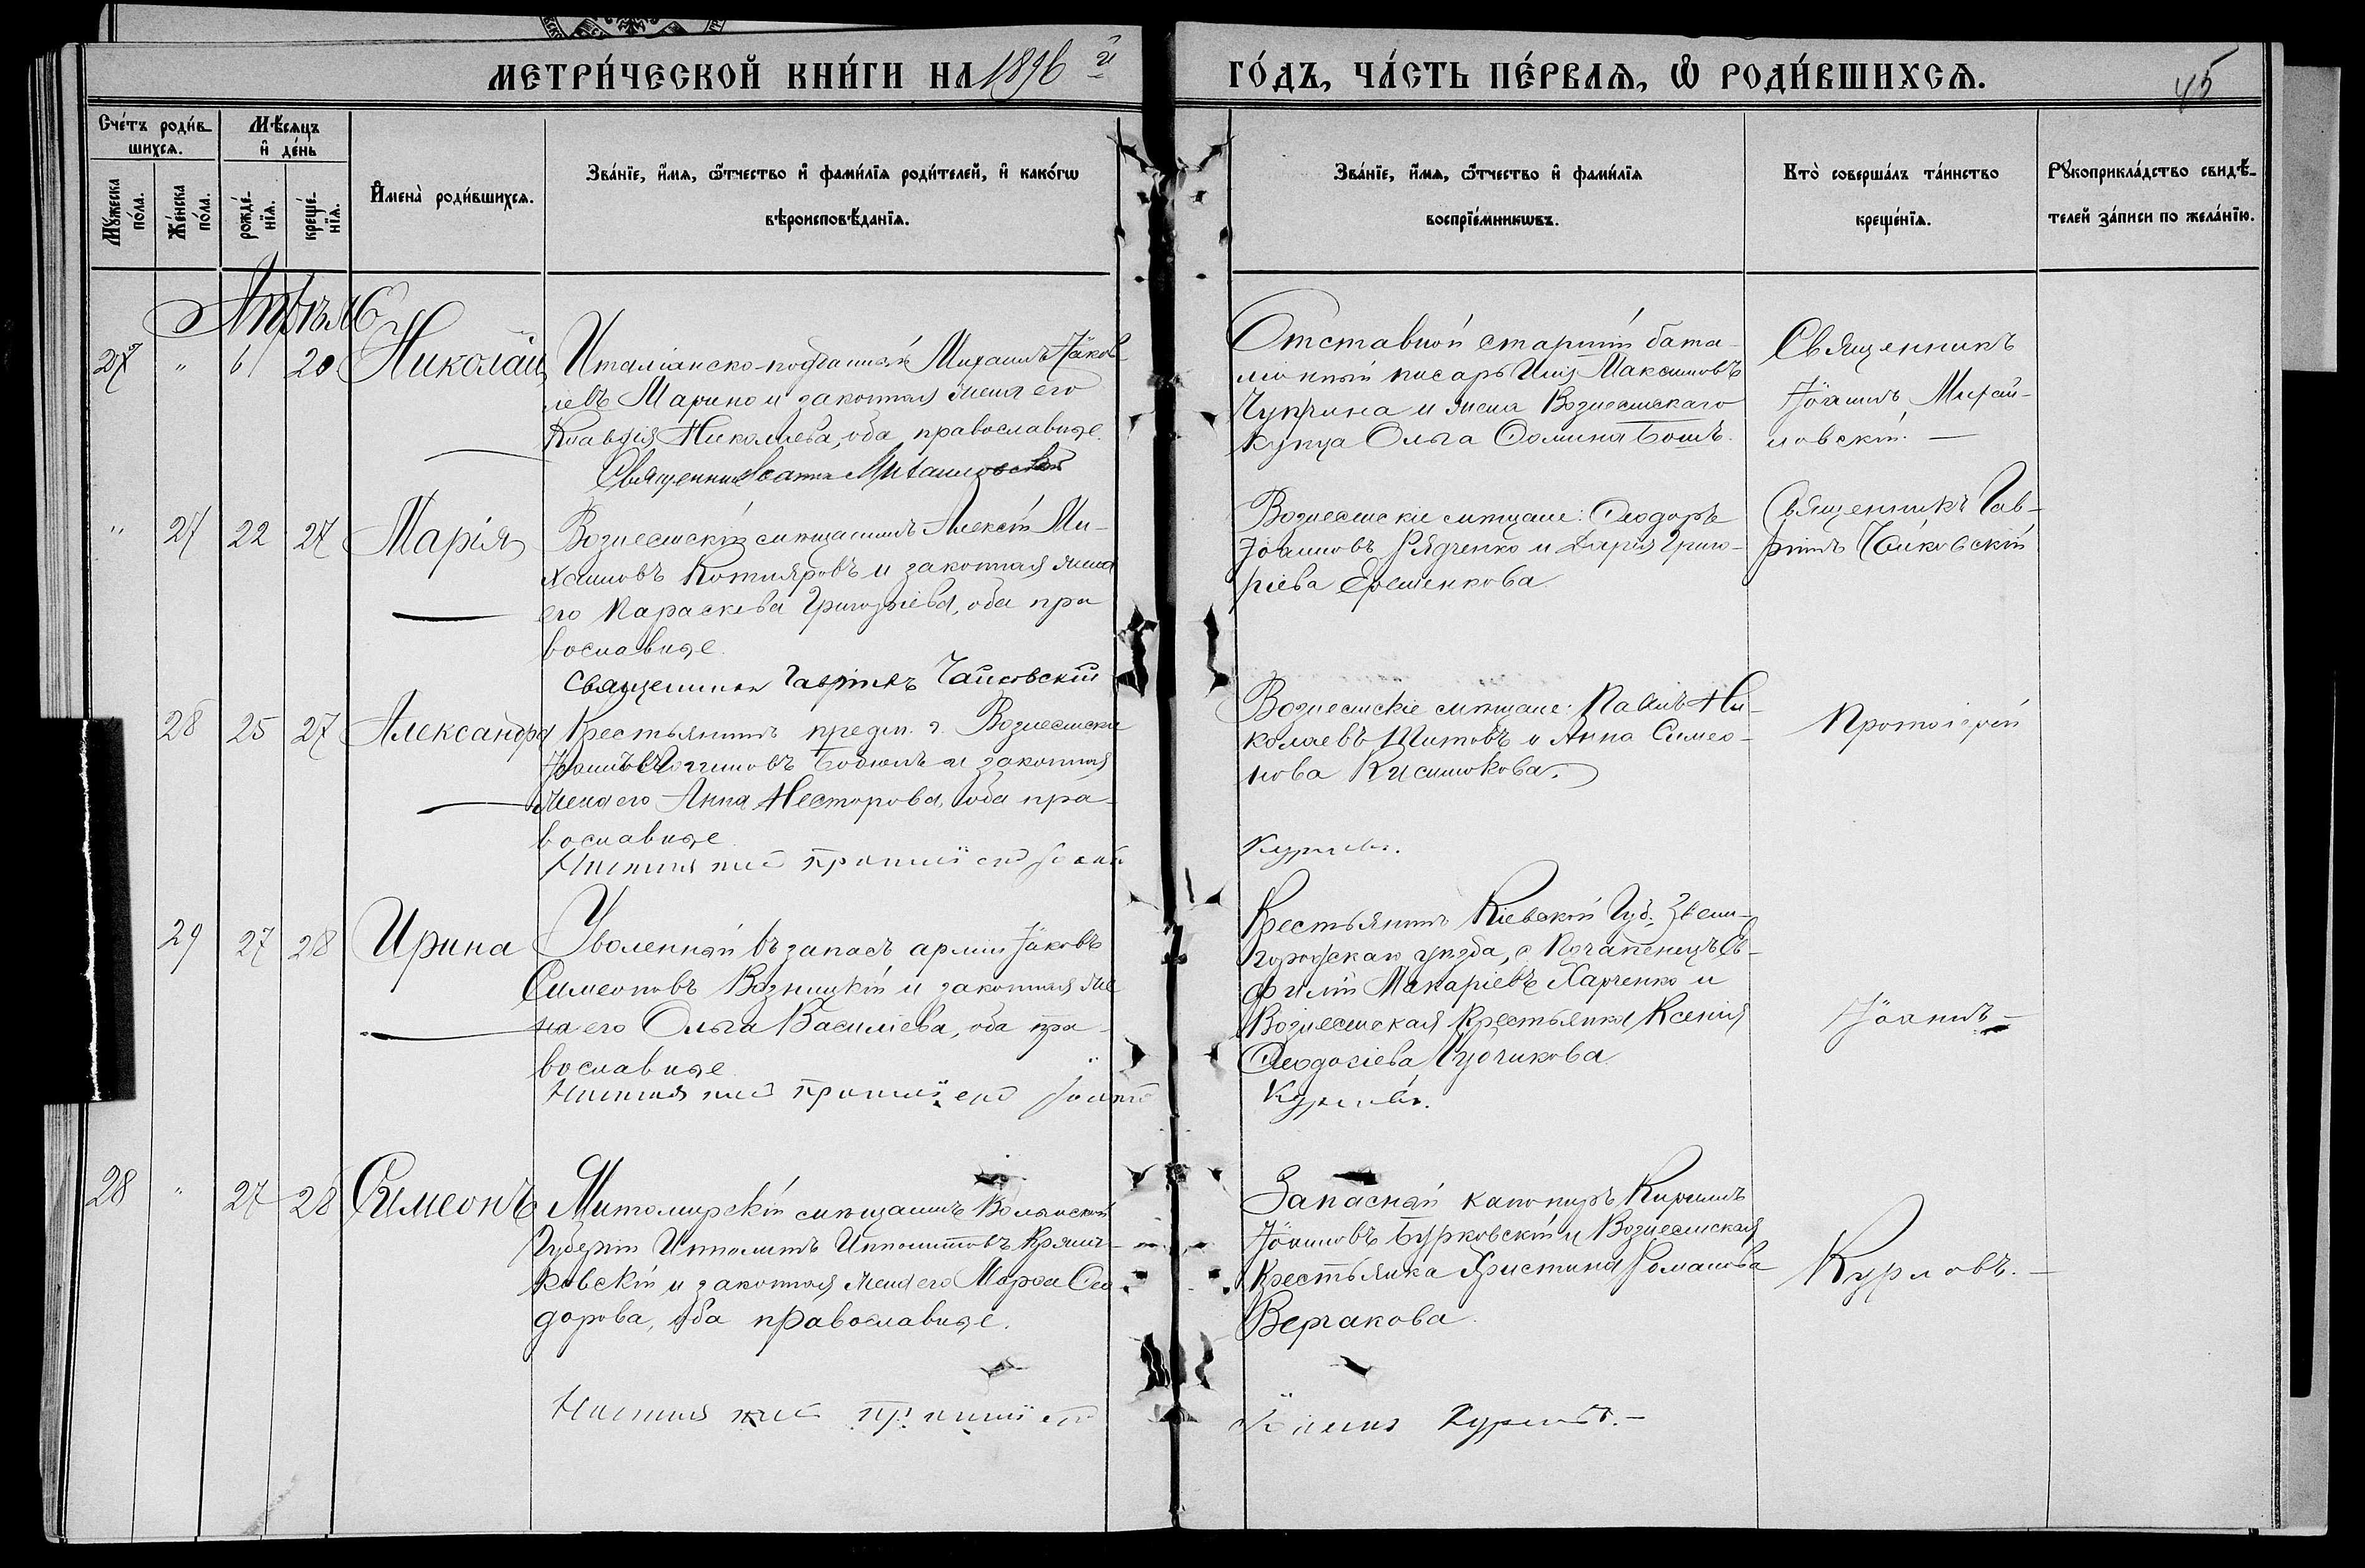 МЕТРИ́ЧЕСКОЙ КНИ́ГИ НА 1896 й
ГО́ДЪ, ЧА́СТЬ ПЕ́РВАЯ, Ѡ РОДИ́ВШИХСЯ.
45
Сче́тъ роди́в-
шихся.
Мѣ́сяцъ
и де́нь
Мꙋ́жеска
по́ла.
Же́нска
по́ла.
рожде́-
нїя.
креще́-
нїя.
Имена̀ роди́вшихся.
Зва́нїе, и́мя, ѻ́тчество и фами́лїя роди́телей, и како́гѡ
вѣроисповѣ́данїя.
Зва́нїе, и́мя, ѻ́тчество и фами́лїя
воспрїе́мникѡвъ.
Кто̀ соверша́лъ та́инство
креще́нїя.
Рꙋкоприкла́дство свидѣ́-
телей за́писи по жела́нїю.
Апрѣль
27 " 6 20 Николай
Италіанско-подданный Михаилъ Іаков
левъ Марино и законная жена его
Клавдія Николаева, оба православные.
Священникъ Іоаннъ Михайловскій
Отставной старшій бата-
ліонный писарь Илія Максимовъ
Чуприна и жена Вознесенскаго
купца Ольга Фомина Бошъ.
Священникъ
Іоаннъ Михай-
ловскій. —
" 27 22 27 Марія
Вознесенскій мѣщанинъ Алексѣй Ми-
хаиловъ Котляровъ и законная жена
его Параскева Григоріева, оба пра
вославные.
Священникъ Гавріилъ Чайковскій
Вознесенскіе мѣщане: Ѳеодоръ
Іоанновъ Рядченко и Дарія Григо-
ріева Еременкова
Священникъ Гав-
ріилъ Чайковскій
28 25 27 Александра
Крестьянинъ предм. г. Вознесенска
Іоаннъ Логгиновъ Бабюкъ и законная
жена его Анна Несторова, оба пра-
вославные
Вознесенскіе мѣщане: Павелъ Ни-
колаевъ Титовъ и Анна Симео-
нова Кисилюкова.
Курловъ.
Протоіерей
29 27 28 Ирина
Уволенный въ запасъ арміи Іаковъ
Симеоновъ Возницкій и законная же
на его Ольга Василіева, оба пра-
вославные
Крестьянинъ Кіевской Губ. Звени-
городскаго уѣзда, с. Почапенецъ Ев-
фимій Макаріевъ Харченко и
Вознесенская крестьянка Ксенія
Ѳеодосіева
Курловъ.
Іоаннъ —
28 " 27 28 Симеонъ
Житомирскій мѣщанинъ Волынской
Губерніи Ипполитъ Ипполитовъ
и законная жена его Марѳа Ѳео
дорова, оба православные.
Запасный канониръ Кириллъ
Іоанновъ Бурковскій и Вознесенская
Крестьянка Христина Романова
Верчакова.
Іоаннъ Курловъ. —
Курловъ. —